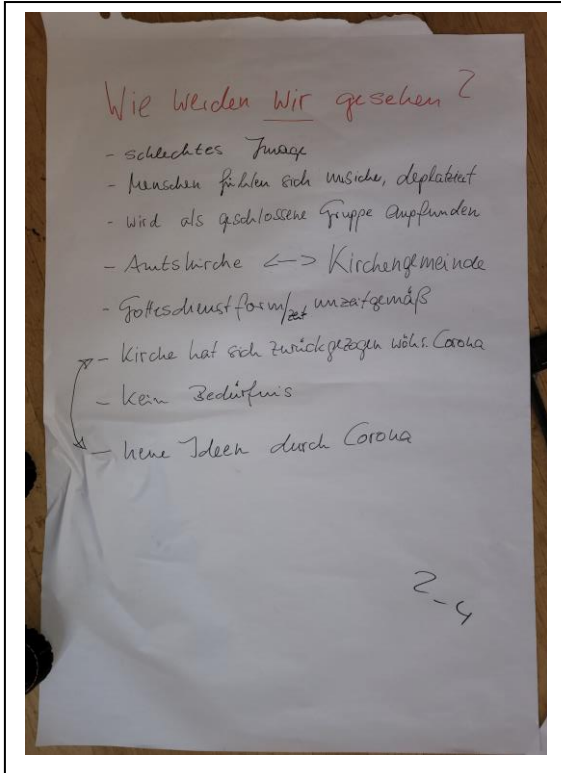 Wie werden wir gesehen?
- schlechtes Image
- Menschen fühlen sich unsicher, deplatziert
- wird als geschlossene Gruppe empfunden
- Amtskirche <-> Kirchengemeinde
- Gottesdienstform/zeit unzeitgemäß
- Kirche hat sich zurückgezogen währ. Corona
- kein Bedürfnis
- neue Ideen durch Corona
2-4